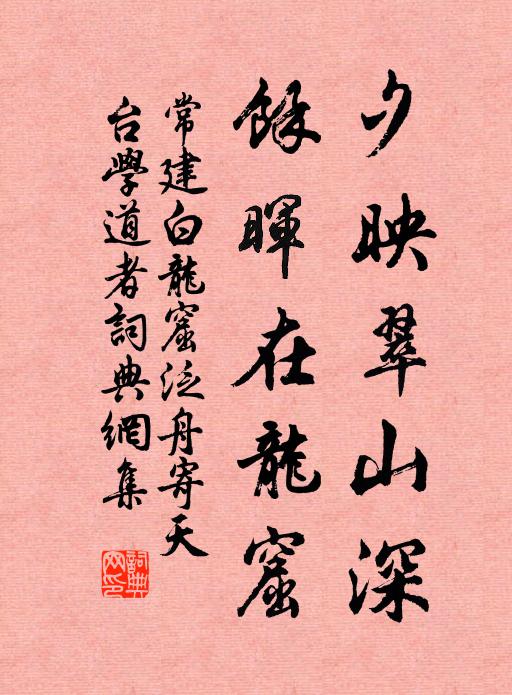 夕映翠山深
餘暉在龍窟
常建白龍窟泛舟寄天
台學道者詞典網集
詞典網印